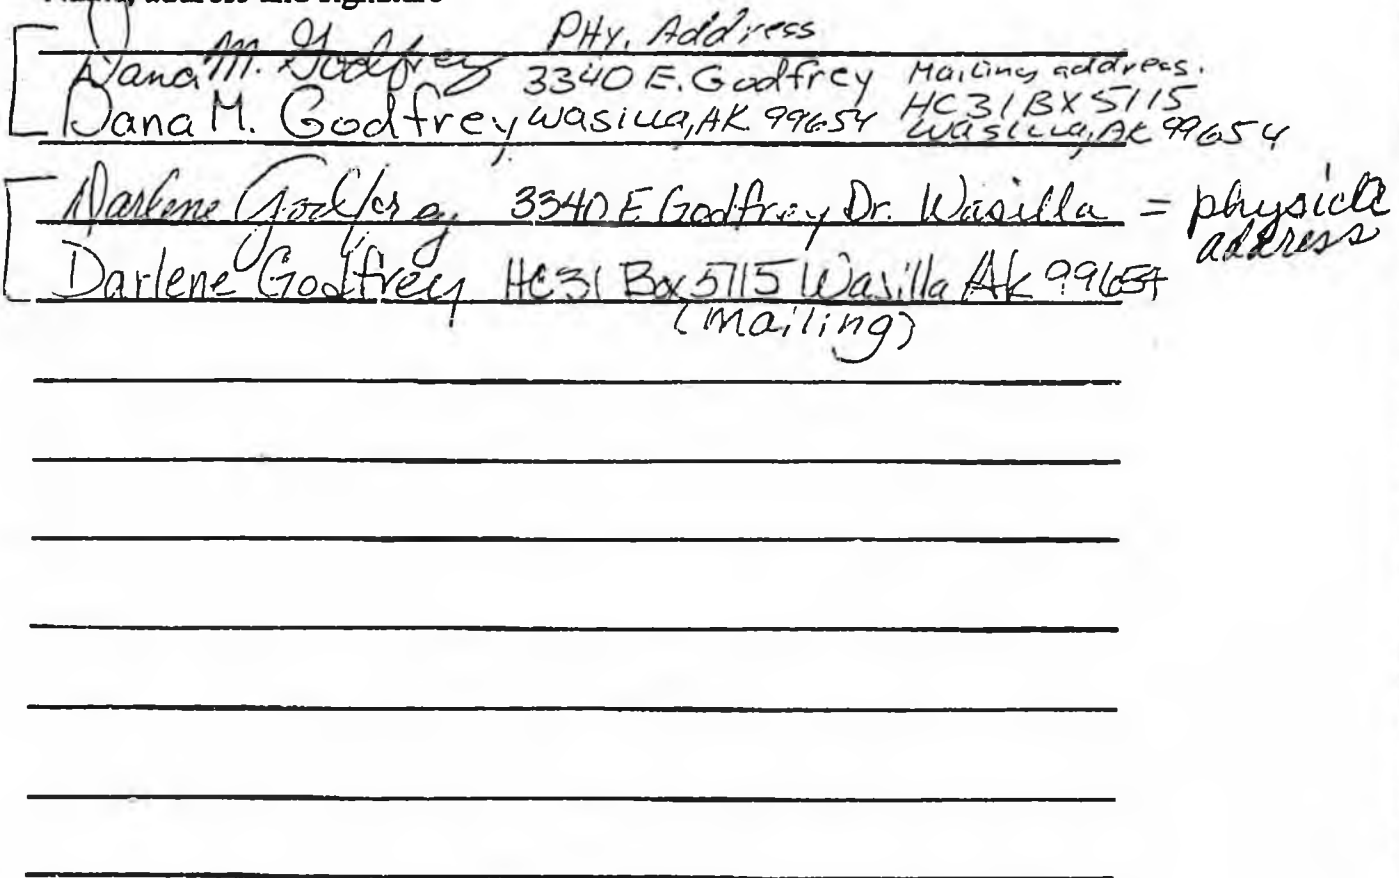 Name, address and signature
PHy. Address
Dana M. Godfrey 3340 E. Godfrey Mailing address.
Dana M. Godfrey Wasilla, AK 99654 HC31 BX 5115
Wasilla, AK 99654
Darlene Godfrey 3340 E Godfrey Dr. Wasilla = physicle
address
Darlene Godfrey HC31 Box 5115 Wasilla Ak 99654
(mailing)